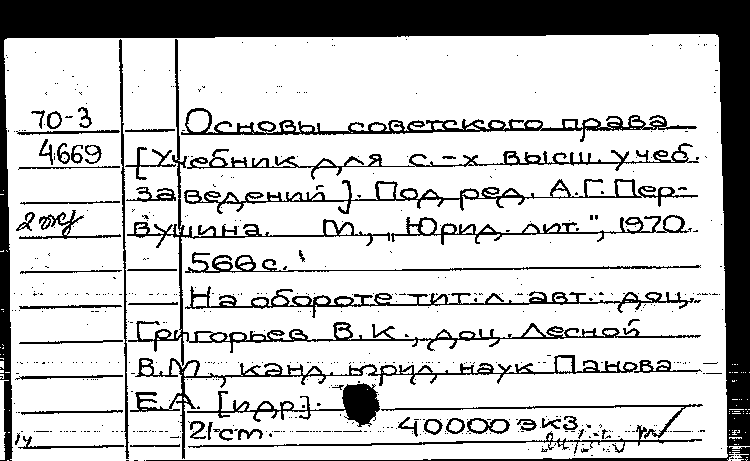 70-3 Основы советского права
4669 [Учебник для с.-х высш. учеб.
заведений]. Под ред. А.Г. Пер-
2 экз вушина. М., „Юрид. лит.", 1970.
566 с.
На обороте тит. л. авт.: доц.
Григорьев В.К., доц. Лесной
В.М., канд. юрид. наук Панова
Е.А. [и др].
21 cm. 40000 экз.
14